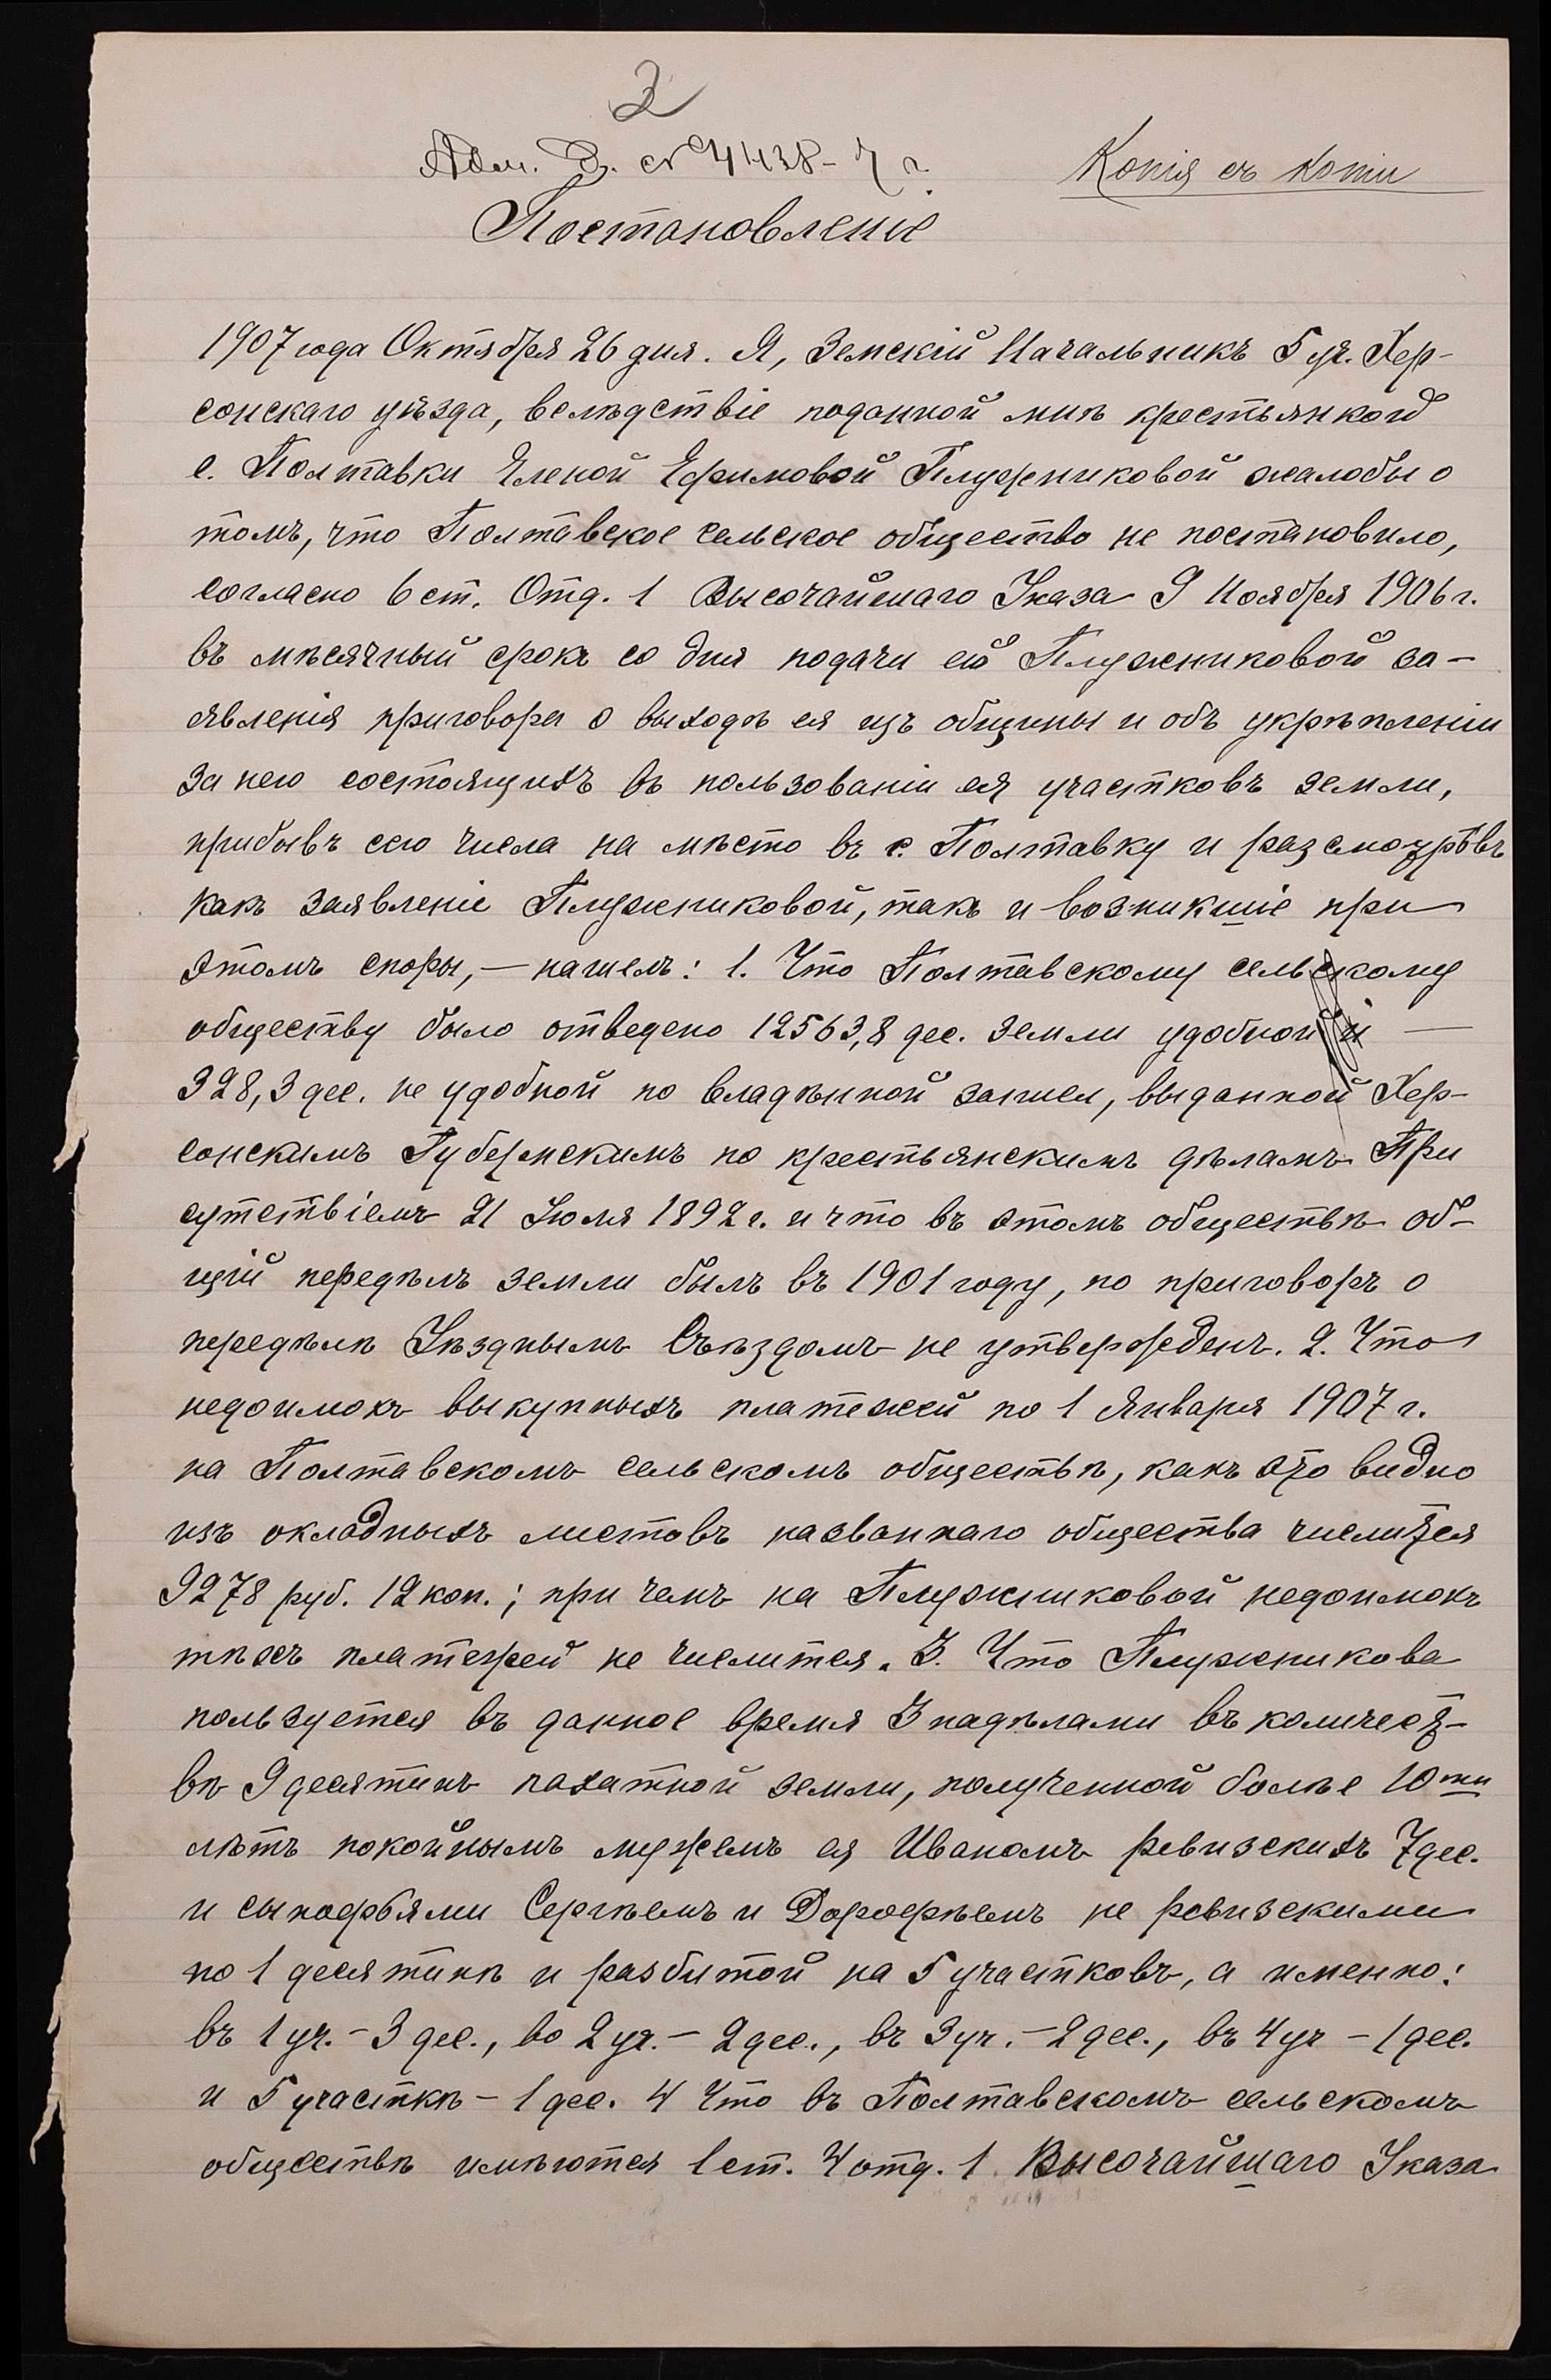 2
Адм. Д. № 4438-7 г.
Копія съ копіи
Постановленіе
1907 года Октября 26 дня. Я, Земскій Начальникъ 5 уч. Хер-
сонскаго уѣзда, вслѣдствіе поданной мнѣ крестьянкой
с. Полтавки Еленой Ефимовой Плужниковой жалобы о
томъ, что Полтавское сельское общество не постановило,
согласно 6 ст. Отд. 1 Высочайшаго Указа 9 Ноября 1906 г.
въ мѣсячный срокъ со дня подачи ей Плужниковой за-
явленія приговора о выходѣ ея изъ общины и объ укрѣпленіи
за нею состоящихъ въ пользованіи ея участковъ земли,
прибывъ сего числа на мѣсто въ с. Полтавку и разсмотрѣвъ
какъ заявленіе Плужниковой, такъ и возникшіе при
этомъ споры, — нашелъ: 1. Что Полтавскому сельскому
обществу было отведено 12563,8 дес. земли удобной и —
328,3 дес. не удобной по владѣнной записи, выданной Хер-
сонскимъ Губернскимъ по крестьянскимъ дѣламъ При
сутствіемъ 21 Іюля 1892 г. и что въ этомъ обществѣ об-
щій передѣлъ земли былъ въ 1901 году, но приговоръ о
передѣлѣ Уѣзднымъ Съѣздомъ не утвержденъ. 2. Что
недоимокъ выкупныхъ платежей по 1 Января 1907 г.
на Полтавскомъ сельскомъ обществѣ, какъ это видно
изъ окладныхъ листовъ названнаго общества числится
9278 руб. 12 коп.; при чемъ на Плужниковой недоимокъ
тѣхъ платежей не числится. 3. Что Плужникова
пользуется въ данное время 3 надѣлами въ количест-
вѣ 9 десятинъ пахатной земли, полученной болѣе 10ти
лѣтъ покойнымъ мужемъ ея Иваномъ ревизскихъ 7 дес.
и сыновьями Сергѣемъ и Дорофѣемъ не ревизскими
по 1 десятинѣ и разбитой на 5 участковъ, а именно:
въ 1 уч. - 3 дес., во 2 уч. - 2 дес., въ 3 уч. - 2 дес., въ 4 уч - 1 дес.
и 5 участкѣ - 1 дес. 4 Что въ Полтавскомъ сельскомъ
обществѣ имѣются 1 ст. 4 отд. 1 Высочайшаго Указа